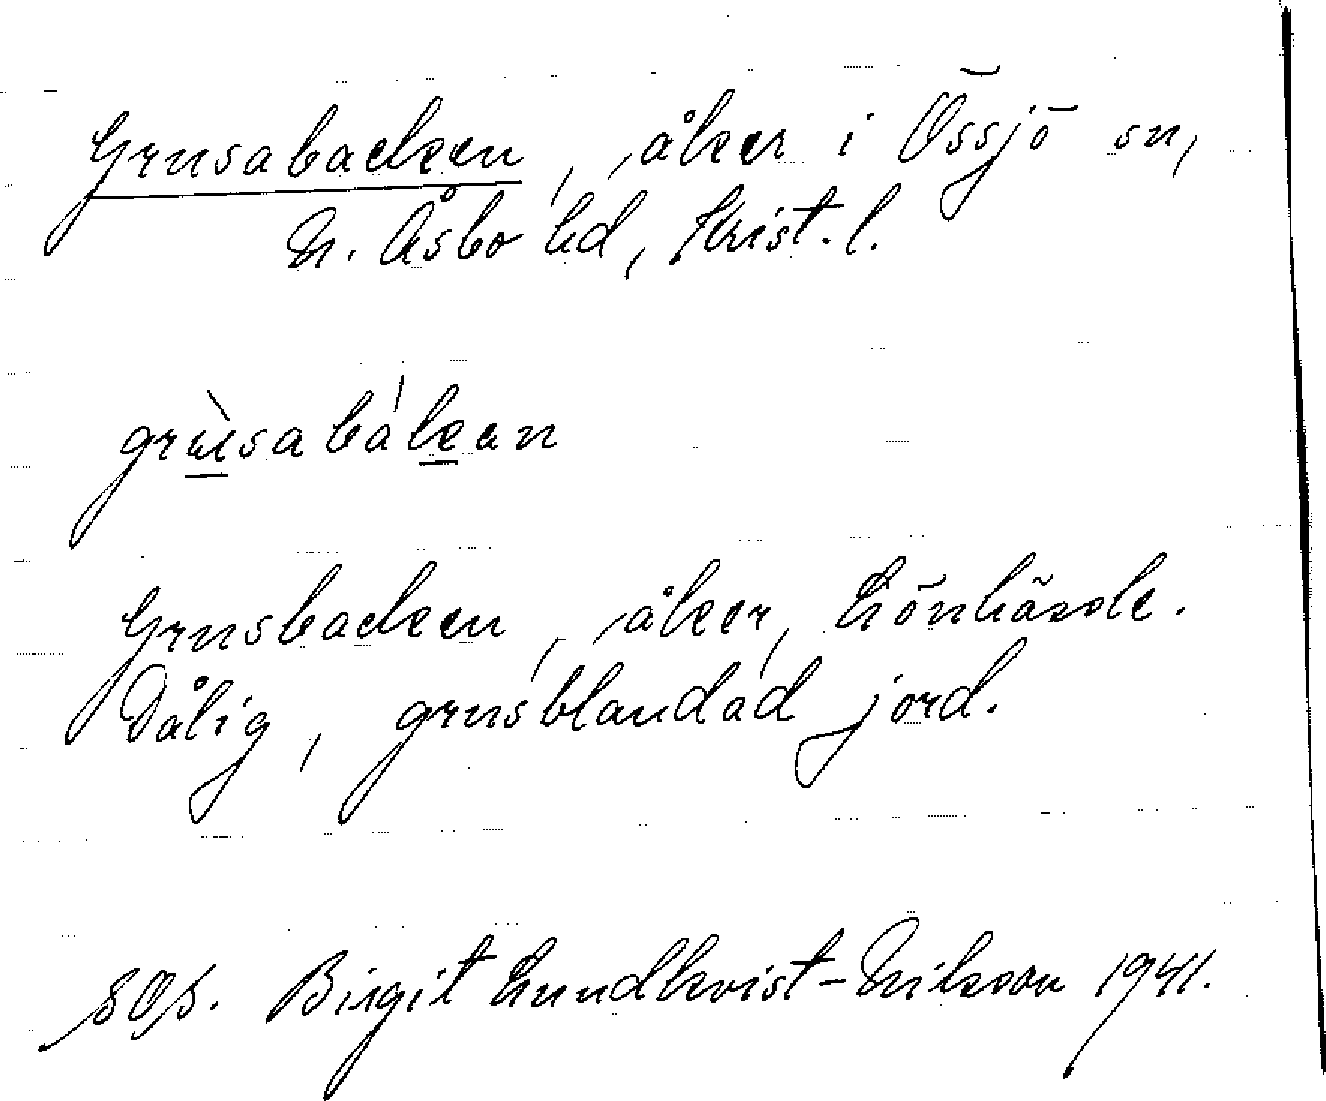 Grusabacken, åker i Össjö sn,
N. Åsbo hd, Krist. l.
grùsabákan
Grusbacken, åker, Lönhässle.
Dålig, grusblandad jord.
SOS. Birgit Lundkvist-Nilsson 1941.